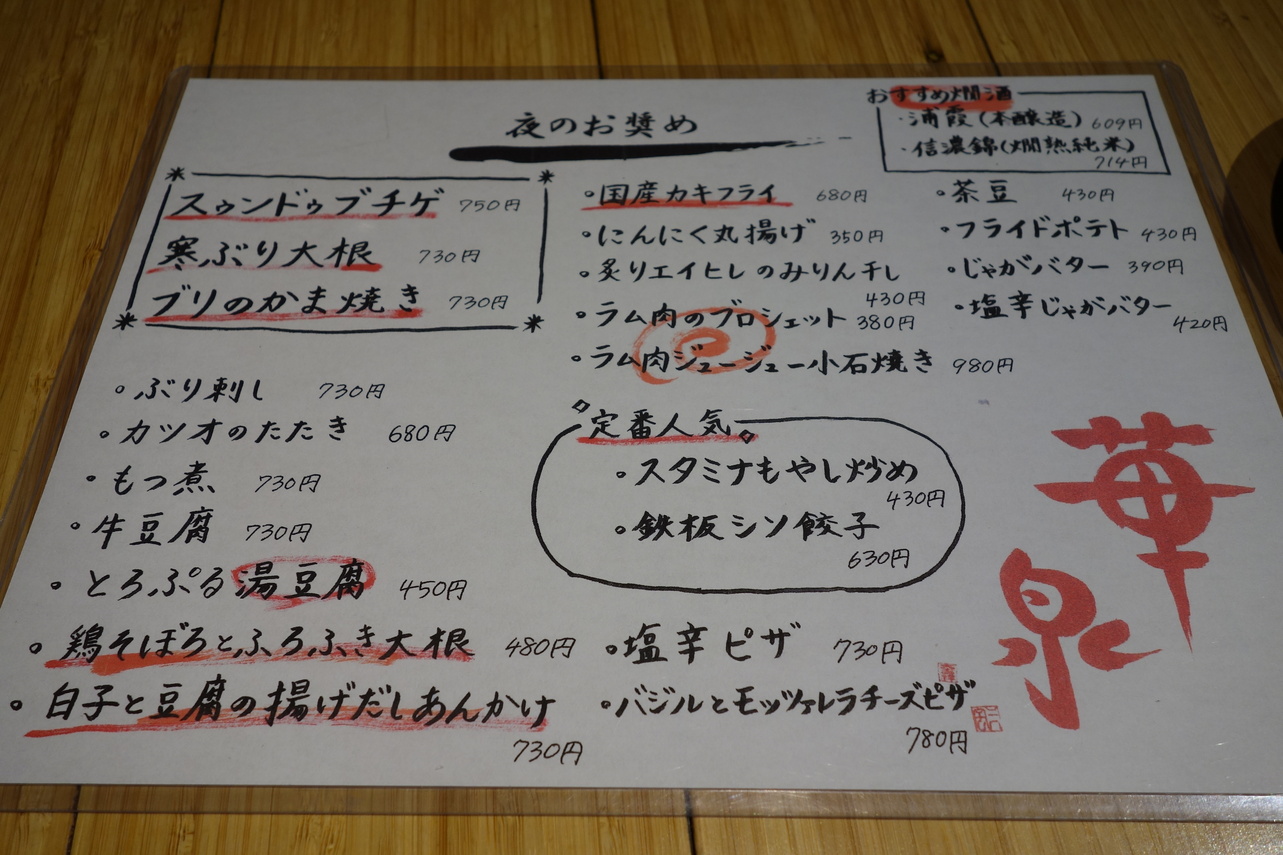 夜のお奨め
おすすめ燗酒
・浦霞(本醸造) 609円
・信濃錦(燗熟純米)
714円
スゥンドゥブチゲ 750円
寒ぶり大根 730円
ブリのかま焼き 730円
ぶり刺し 730円
カツオのたたき 680円
もつ煮 730円
牛豆腐 730円
とろぷる湯豆腐 450円
鶏そぼろとふろふき大根 480円
白子と豆腐の揚げだしあんかけ
730円
国産カキフライ 680円
にんにく丸揚げ 350円
炙りエイヒレのみりん干し
430円
ラム肉のブロシェット 380円
ラム肉ジュージュー小石焼き 980円
定番人気。
スタミナもやし炒め
430円
鉄板シソ餃子
630円
塩辛ピザ 730円
バジルとモッツァレラチーズピザ
780円
茶豆 430円
フライドポテト 430円
じゃがバター 390円
塩辛じゃがバター
420円
華泉